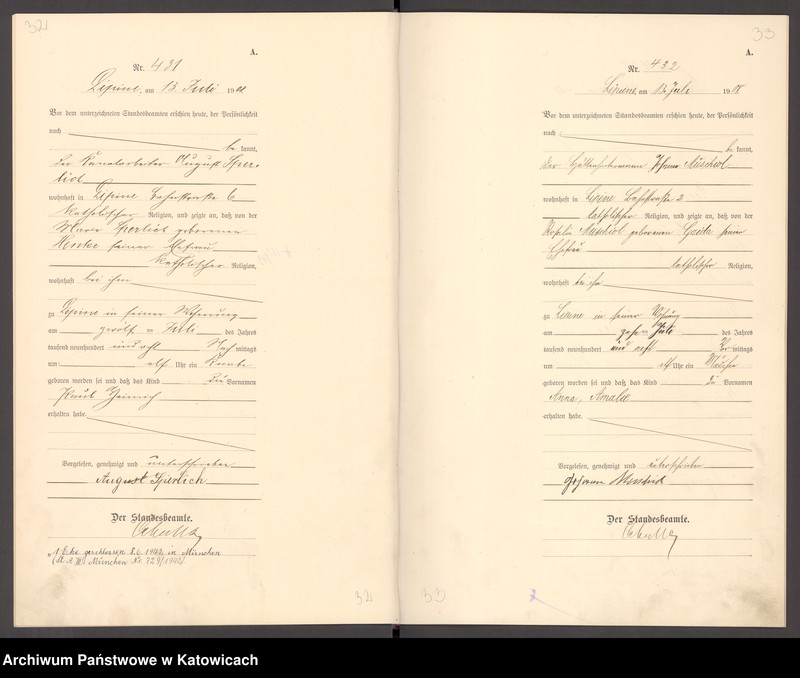 321
A.
Nr. 431
Lipine, am 13. Juli 1908
Vor dem unterzeichneten Standesbeamten erschien heute, der Persönlichkeit
nach
be kannt,
der Kanalarbeiter August
wohnhaft in Lipine 6
katholischer Religion, und zeigte an, daß von der
geborenen
seiner Ehefrau
katholischer Religion,
wohnhaft bei ihm
zu Lipine in seiner Wohnung
am zwölf ten Juli des Jahres
tausend neunhundert und acht Nach mittags
um elf Uhr ein Knabe
geboren worden sei und daß das Kind die Vornamen
Paul Heinrich
erhalten habe.
Vorgelesen, genehmigt und unterschrieben
August Sperlich
Der Standesbeamte.
1. Ehe geschlossen 2.6.1942 in München
(St. A. III) München Nr. 729/1942).
32
33
A.
Nr. 432
Lipine, am 13. Juli 1908
Vor dem unterzeichneten Standesbeamten erschien heute, der Persönlichkeit
nach
be kannt,
der Johann Muschiol
wohnhaft in Lipine 2
katholischer Religion, und zeigte an, daß von der
Muschiol geborenen seiner
Ehefrau
katholischer Religion,
wohnhaft bei ihm
zu Lipine in seiner Wohnung
am Juli des Jahres
tausend neunhundert und acht Vor mittags
um Uhr ein Mädchen
geboren worden sei und daß das Kind die Vornamen
Anna, Amalie
erhalten habe.
Vorgelesen, genehmigt und unterschrieben
Johann Muschiol
Der Standesbeamte.
33
Archiwum Państwowe w Katowicach